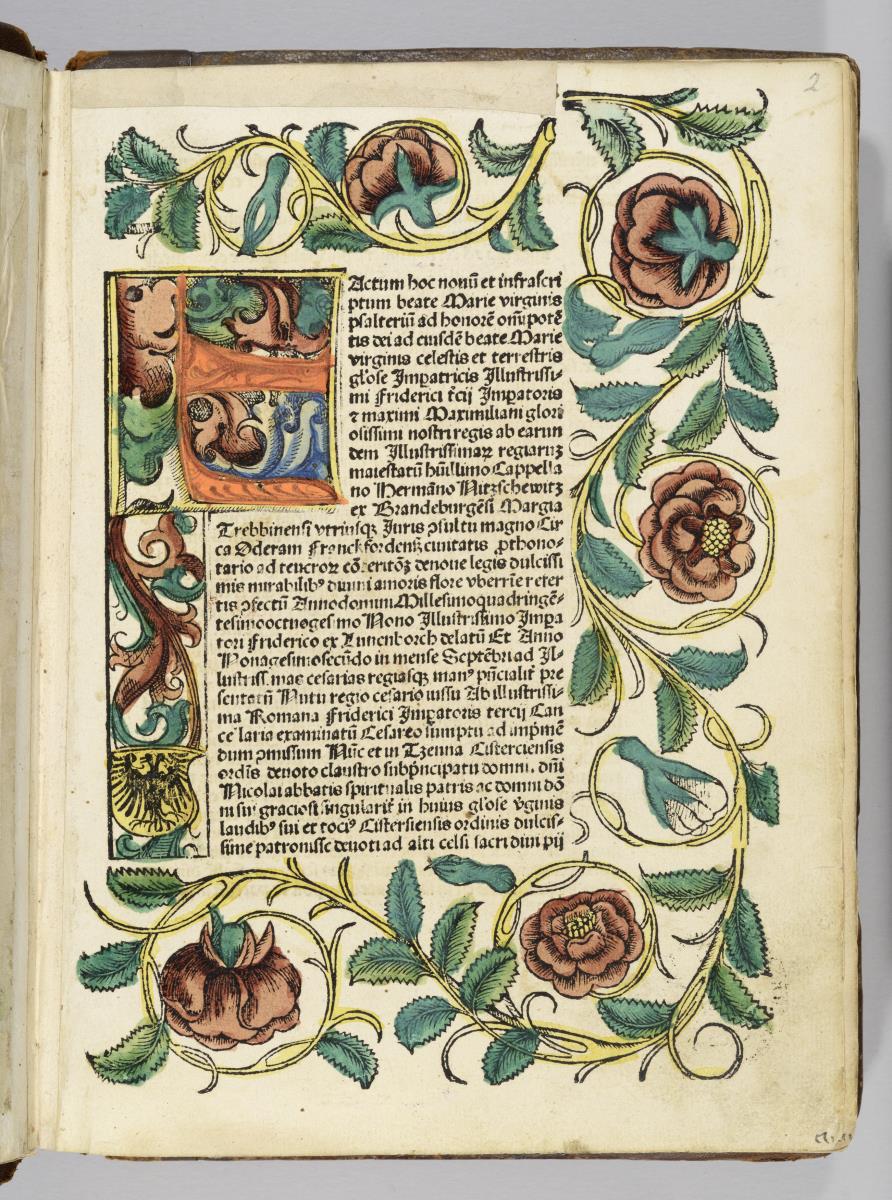 2
FActum hoc nonũ et infrascri
ptum beate Marie virginis
psalteriũ ad honorẽ om̃ipotẽ
tis dei ad eiusdẽ beate Marie
virginis celestis et terrestris
glose Imꝑatricis Illustrissi⸗
mi Friderici t̃cij Imꝑatoris
⁊ maximi Maximiliani glori
osissimi nostri regis ab earun
dem Illustrissimaꝝ regiaruꝫ
maiestatũ hũillimo Cappella
no Hermãno Nitzschewitz
ex Brandeburgẽsi Margia
Trebbinensi vtriusqꝫ Iuris ꝯsultu magno Cir
ca Oderam Franckfordensꝫ ciuitatis ꝓthono⸗
tario ad teucroꝝ denoue legis dulcissi
mis mirabilibꝰ diuini amoris flore vberrie refer
tis ꝯfectũ Annodomini Millesimoquadringẽ⸗
tesimooctuoges mo Nono Illustrissimo Imꝑa
tori Friderico ex Lunenborch delatũ Et Anno
Nonagesimosecũdo in mense Septẽbri ad Il⸗
lustriss. mas cesarias regiasqꝫ manꝰ pñcialit̃ pre
sentatũ Nutu regio cesario iussu Ab illustrissi⸗
ma Romana Friderici Imꝑatoris tercij Can
ce laria examinatũ Cesareo sumptu ad imp̃mẽ
dum ꝯmissum Nũc et in Tzenna Cisterciensis
ordĩs deuoto claustro subp̃ncipatu domni. dñi
Nicolai abbatis spiritualis patris ac domni dõ
ni sui graciosi singularit̃ in huius glose ṽginis
laudibꝰ sui et tociꝰ Cistersiensis ordinis dulcis⸗
sime patronisse deuoti ad alti celsi sacri diui pij